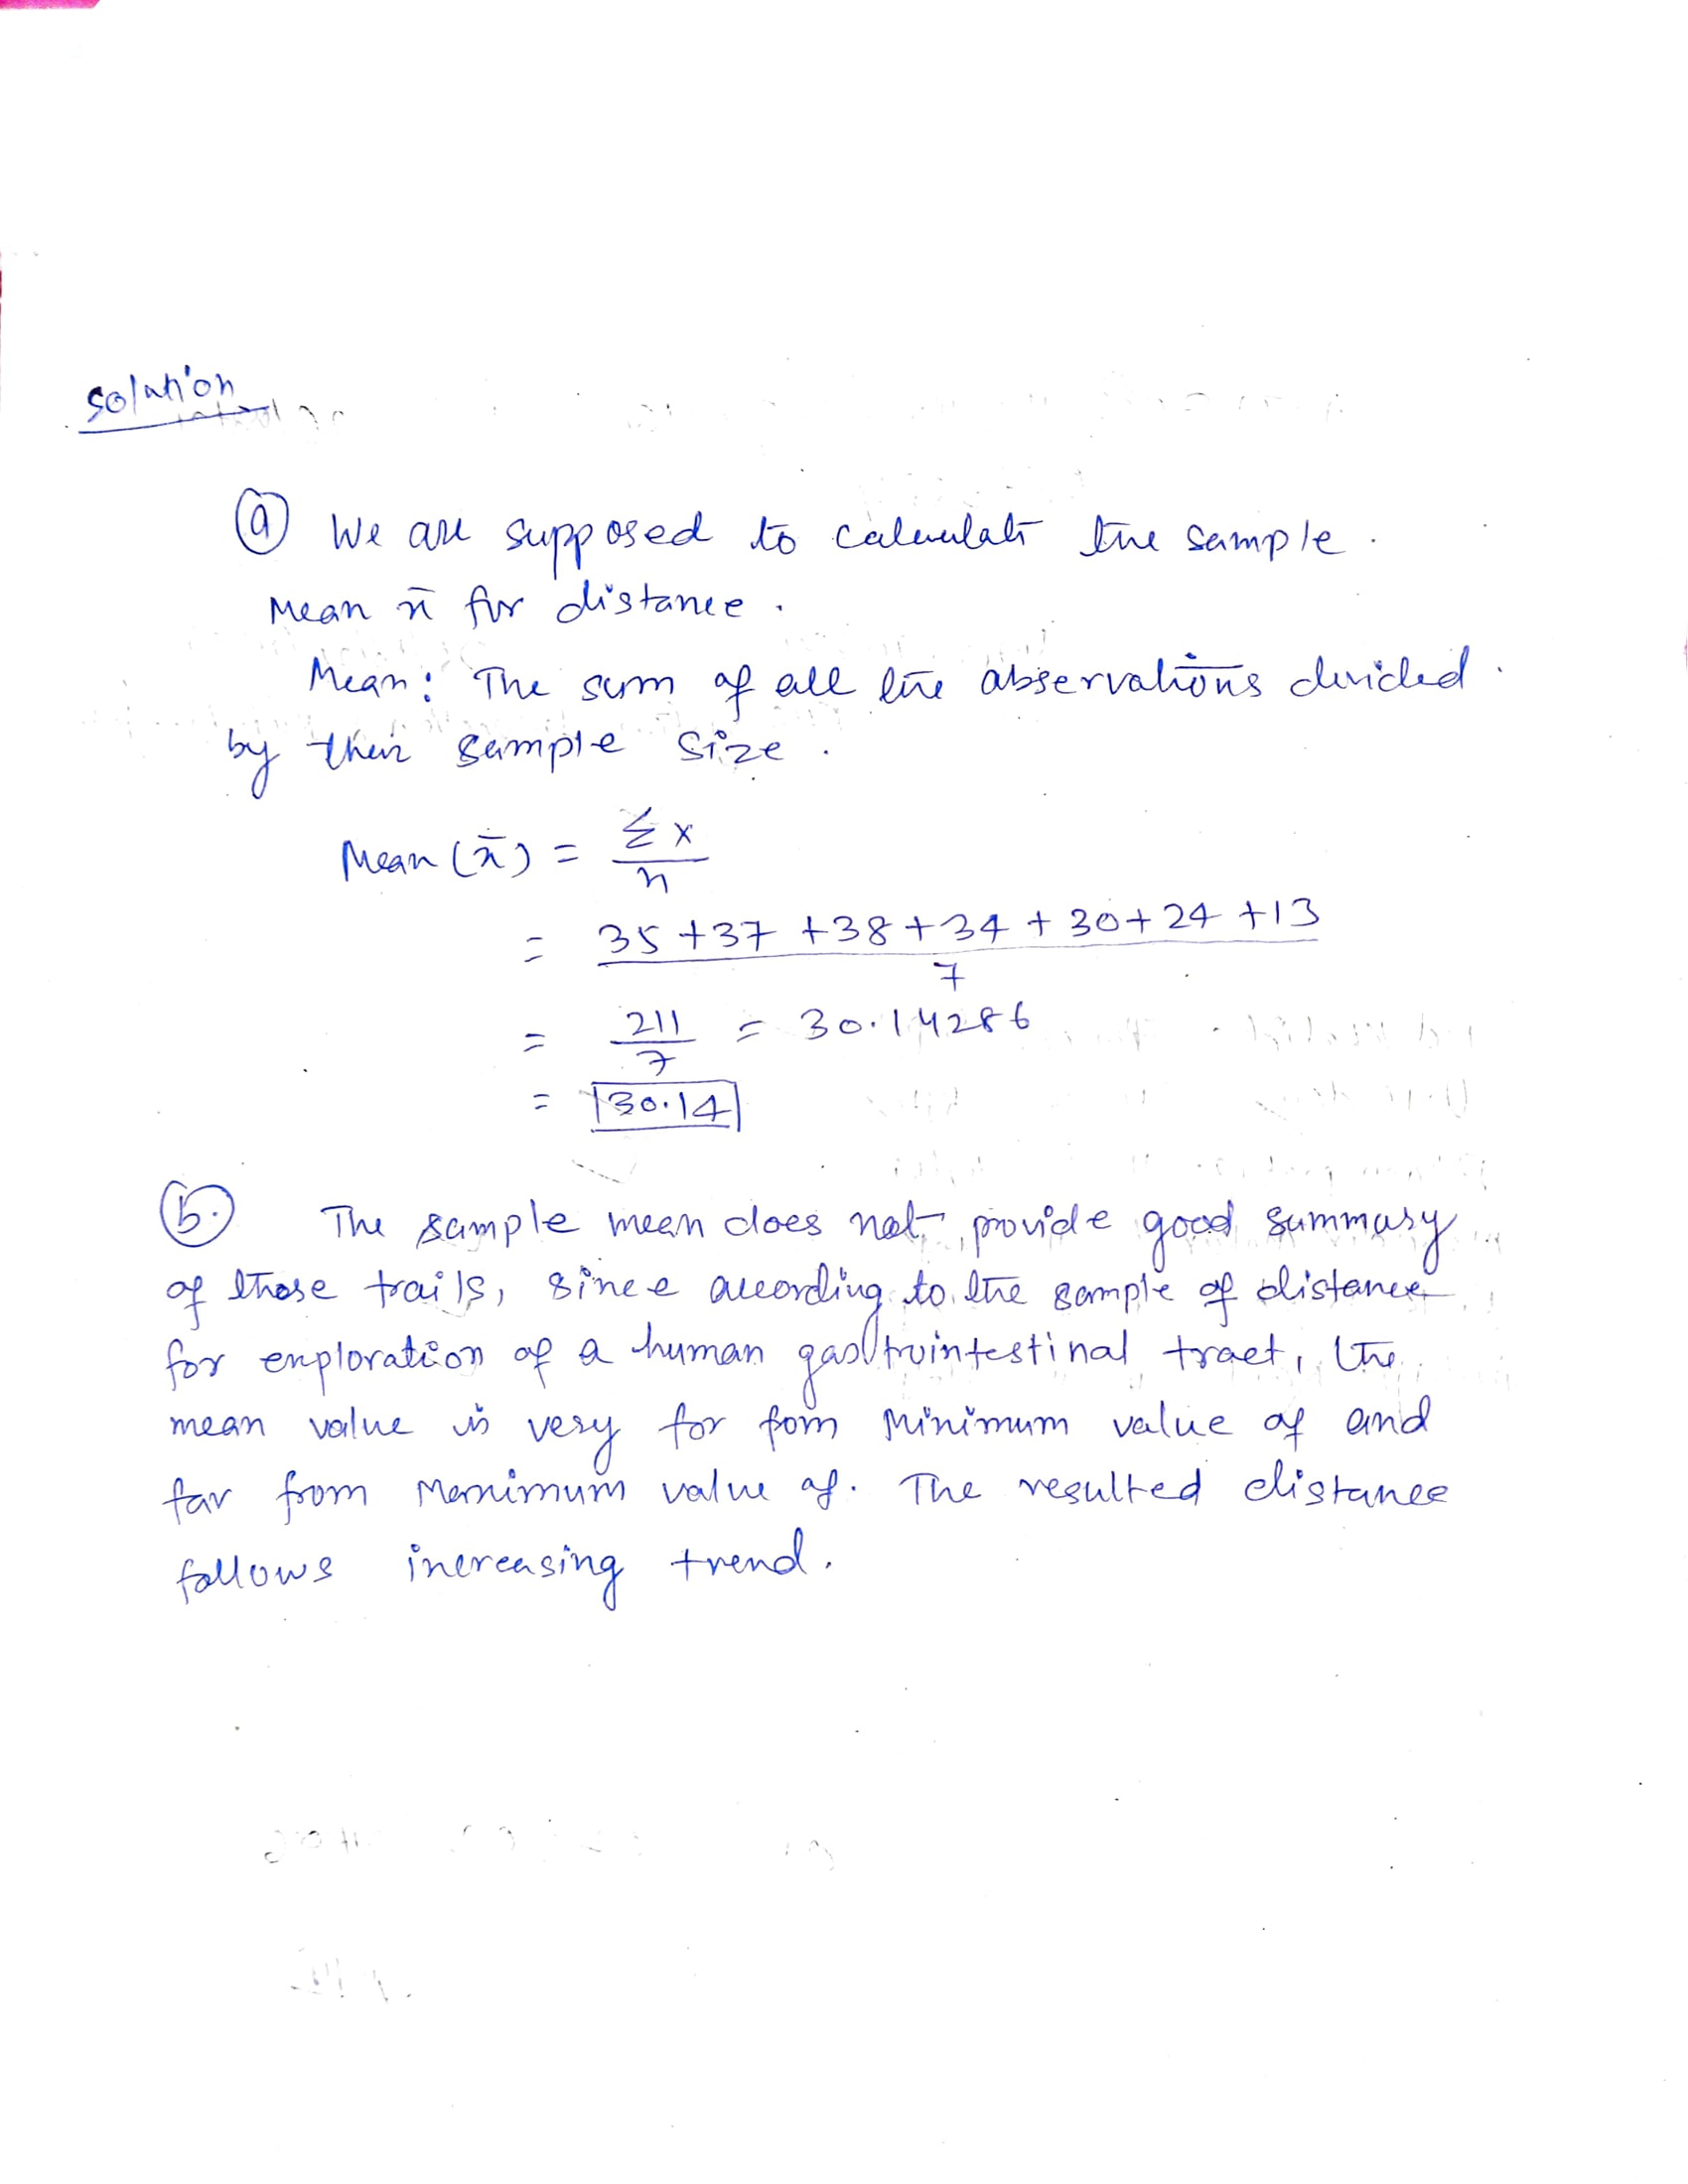 Solution
(a) We are supposed to calculate the sample.
Mean x̄ for distance.
Mean: The sum of all the observations divided.
by their sample size.
Mean (x̄) = Σx
n
= 35 + 37 + 38 + 34 + 30 + 24 + 13
7
= 211 = 30.14286
7
= 30.14
(b.) The sample mean does not provide good summary
of those trails, since according to the sample of distance
for exploration of a human gastrointestinal tract, the
mean value is very for fom Minimum value of and
far from Maximum value of. The resulted distance
follows increasing trend.